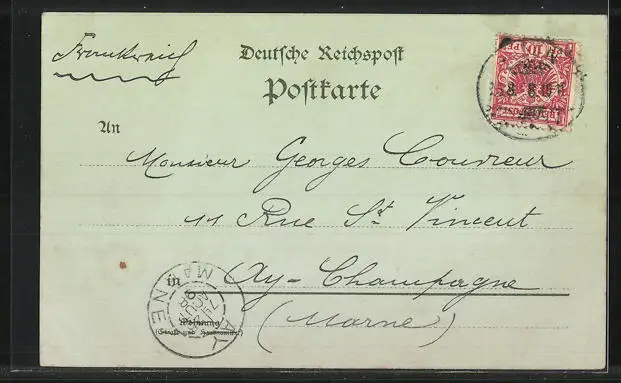 Frankreich
Deutsche Reichspost
Postkarte
An
Monsieur Georges Couvreur
11 Rue St Vincent
in Ay-Champagne
(Marne)
Wohnung
(Straße und Hausnummer)
AY
MARNE
10 PF
REICHSPOST
8 8